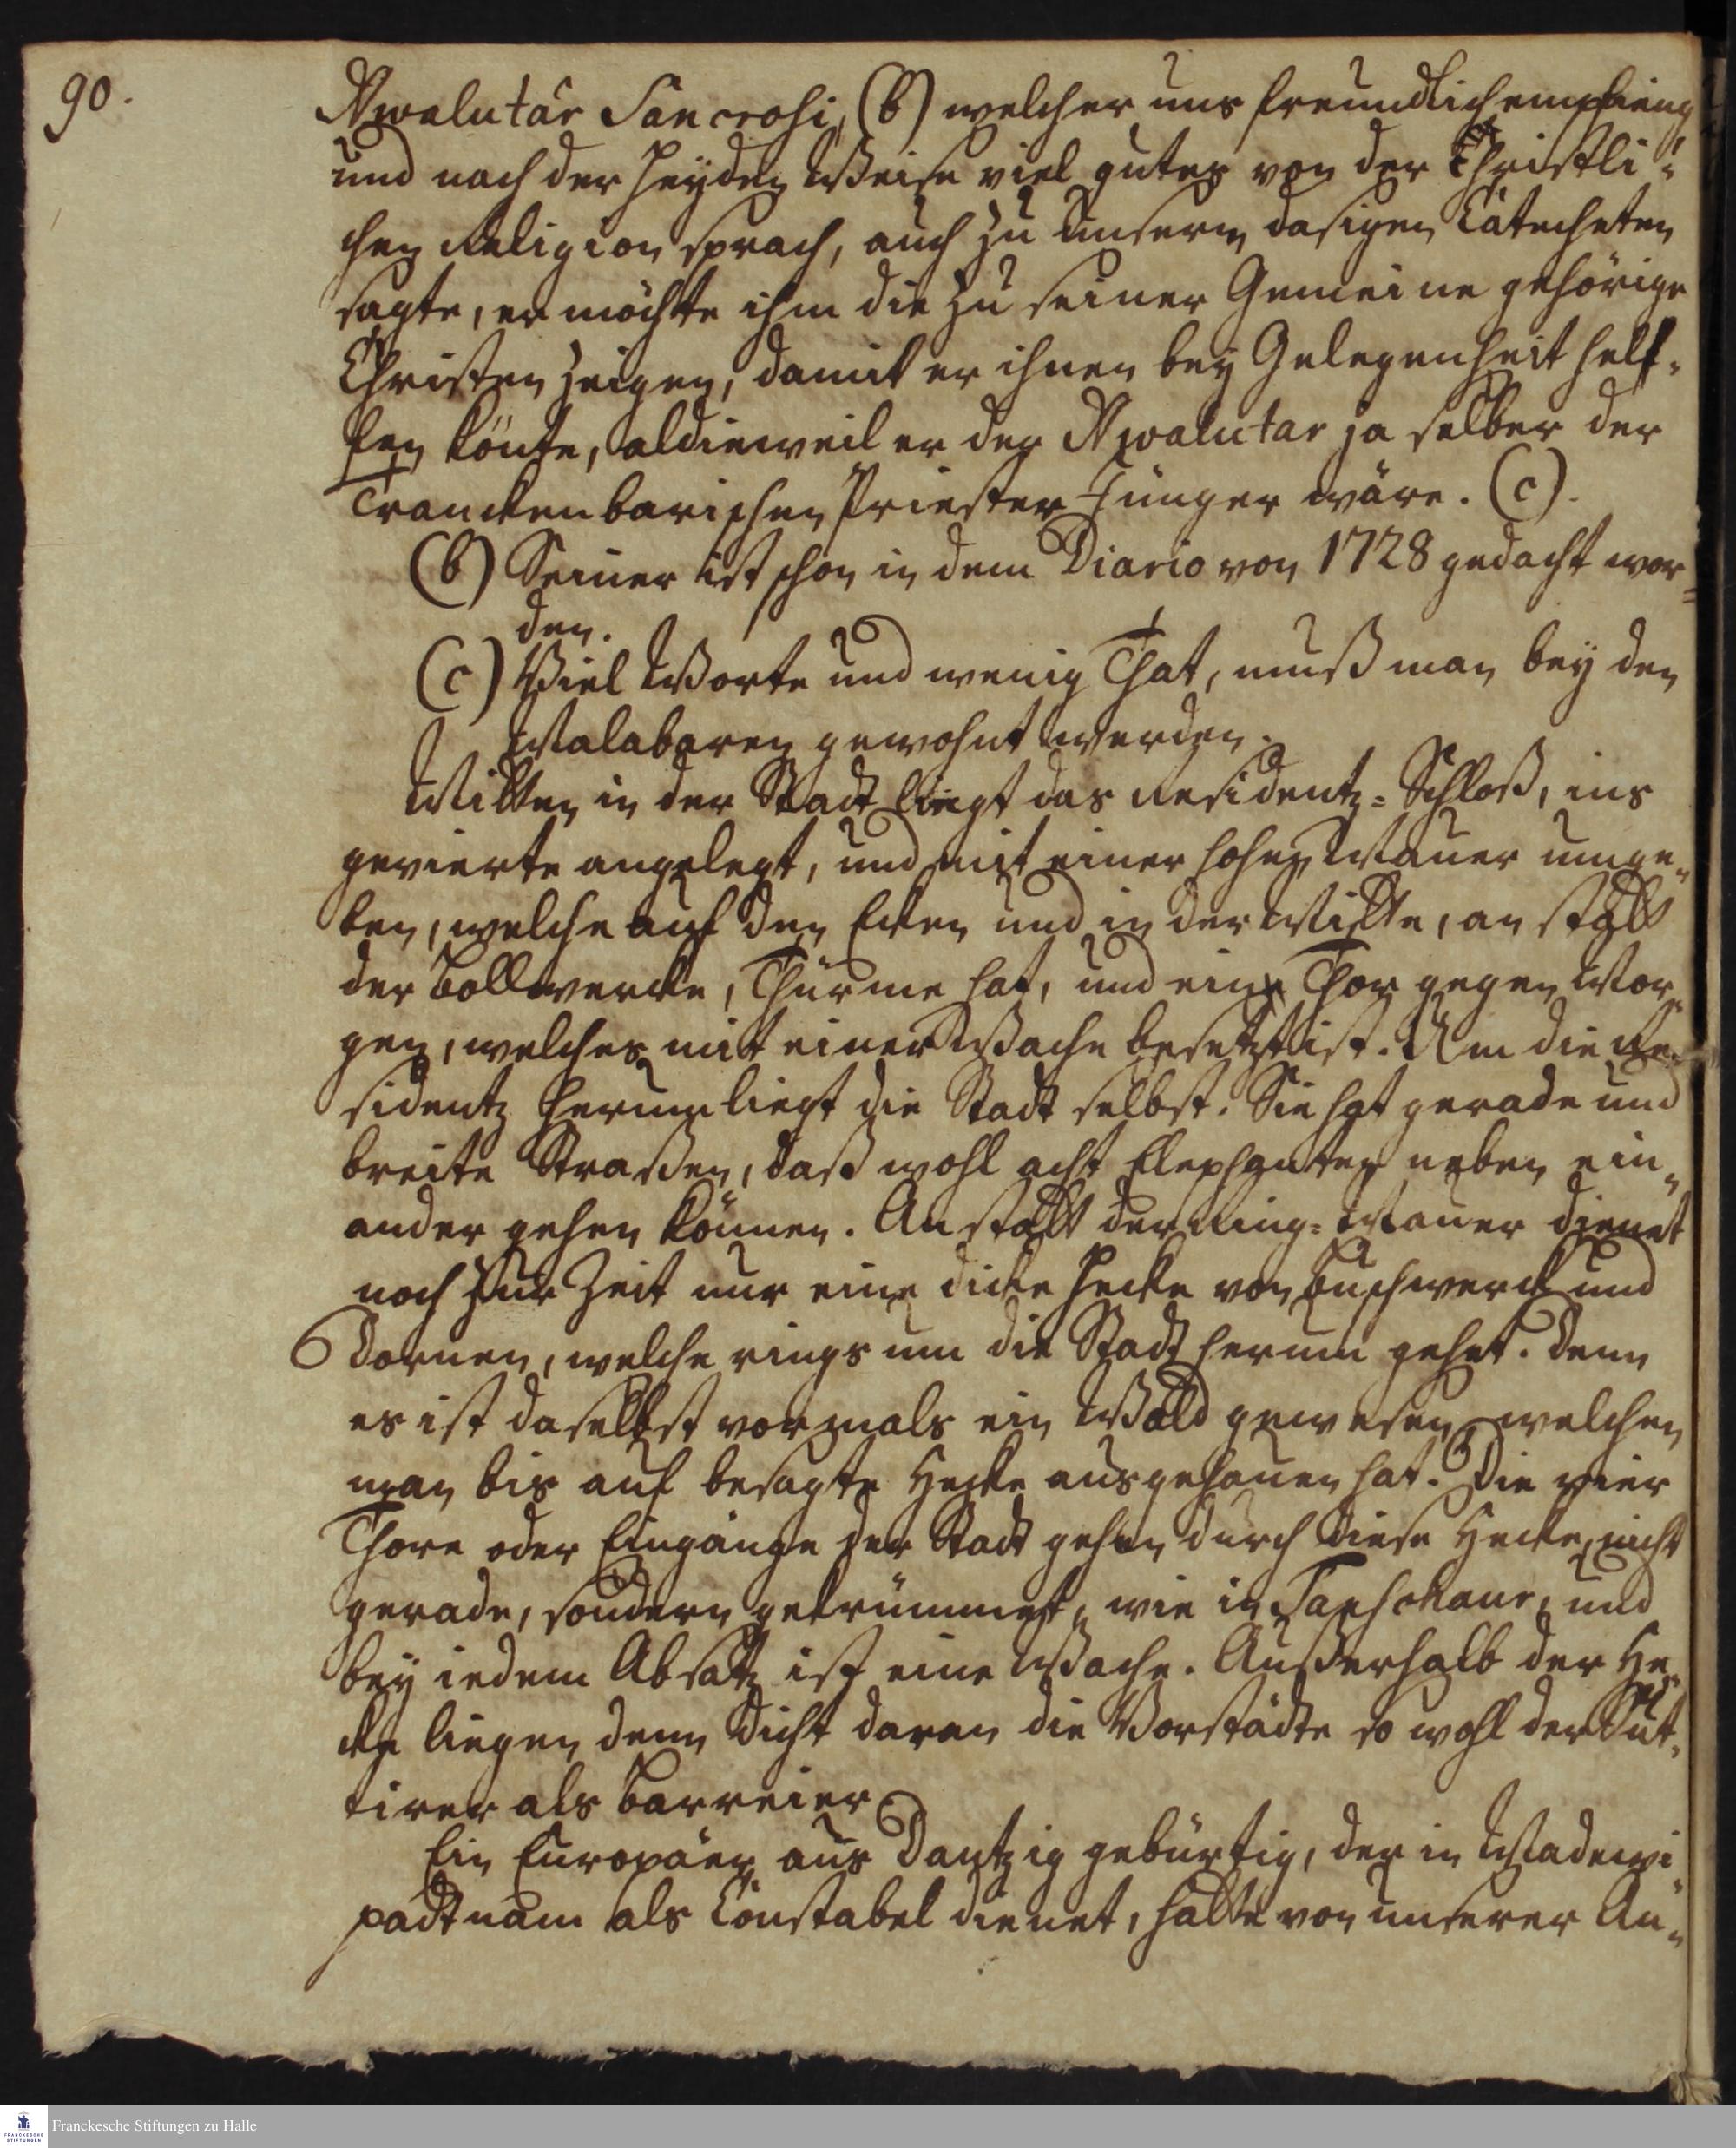 90.
Awalutár Sáncrosi, (b) welcher uns freundlich empfieng
und nach der Heyden Weise viel gutes von der Christli-
chen Religion sprach, auch zu unserm dasigen Catecheten
sagte, er möchte ihm die zu seiner Gemeine gehörige
Christen zeigen, damit er ihnen bey Gelegenheit helf-
fen könte, aldieweil er der Awalutar ja selber der
Tranckenbarischen Priester Jünger wäre. (c).
(b) Seiner ist schon in dem Diario von 1728 gedacht wor=
den.
(c) Viel Worte und wenig That, muß man bey den
Malabaren gewohnt werden.
Mitten in der Stadt liegt das Residentz=Schloß, ins
gevierte angelegt, und mit einer hohen Mauer umge-
ben, welche auf den Ecken und in der Mitte, an statt
der Bollwercke, Thürme hat, und eine Thor gegen Mor-
gen, welches mit einer Wache besetzt ist. Um die Re-
sidentz herum liegt die Stadt selbst. Sie hat gerade und
breite Straßen, daß wohl acht Elephanten neben ein-
ander gehen können. Anstatt der Ring=Mauer dienet
noch zur Zeit nur eine dicke Hecke von Buschwerck und
Dornen, welche rings um die Stadt herum gehet. Denn
es ist daselbst vormals ein Wald gewesen, welchen
man bis auf besagte Hecke ausgehauen hat. Die vier
Thore oder Eingänge der Stadt gehen durch diese Hecke, nicht
gerade, sondern gekrümmet, wie in Tanschaur, und
bey iedem Absatz ist eine Wache. Außerhalb der He-
cke liegen denn dicht daran die Vorstädte so wohl der Sut-
tirer als Barreier.
Ein Europäer aus Dantzig gebürtig, der in Madewi-
padtnam als Constabel dienet, hatte von unserer An-
Franckesche Stiftungen zu Halle
FRANCKESCHE
STIFTUNGEN